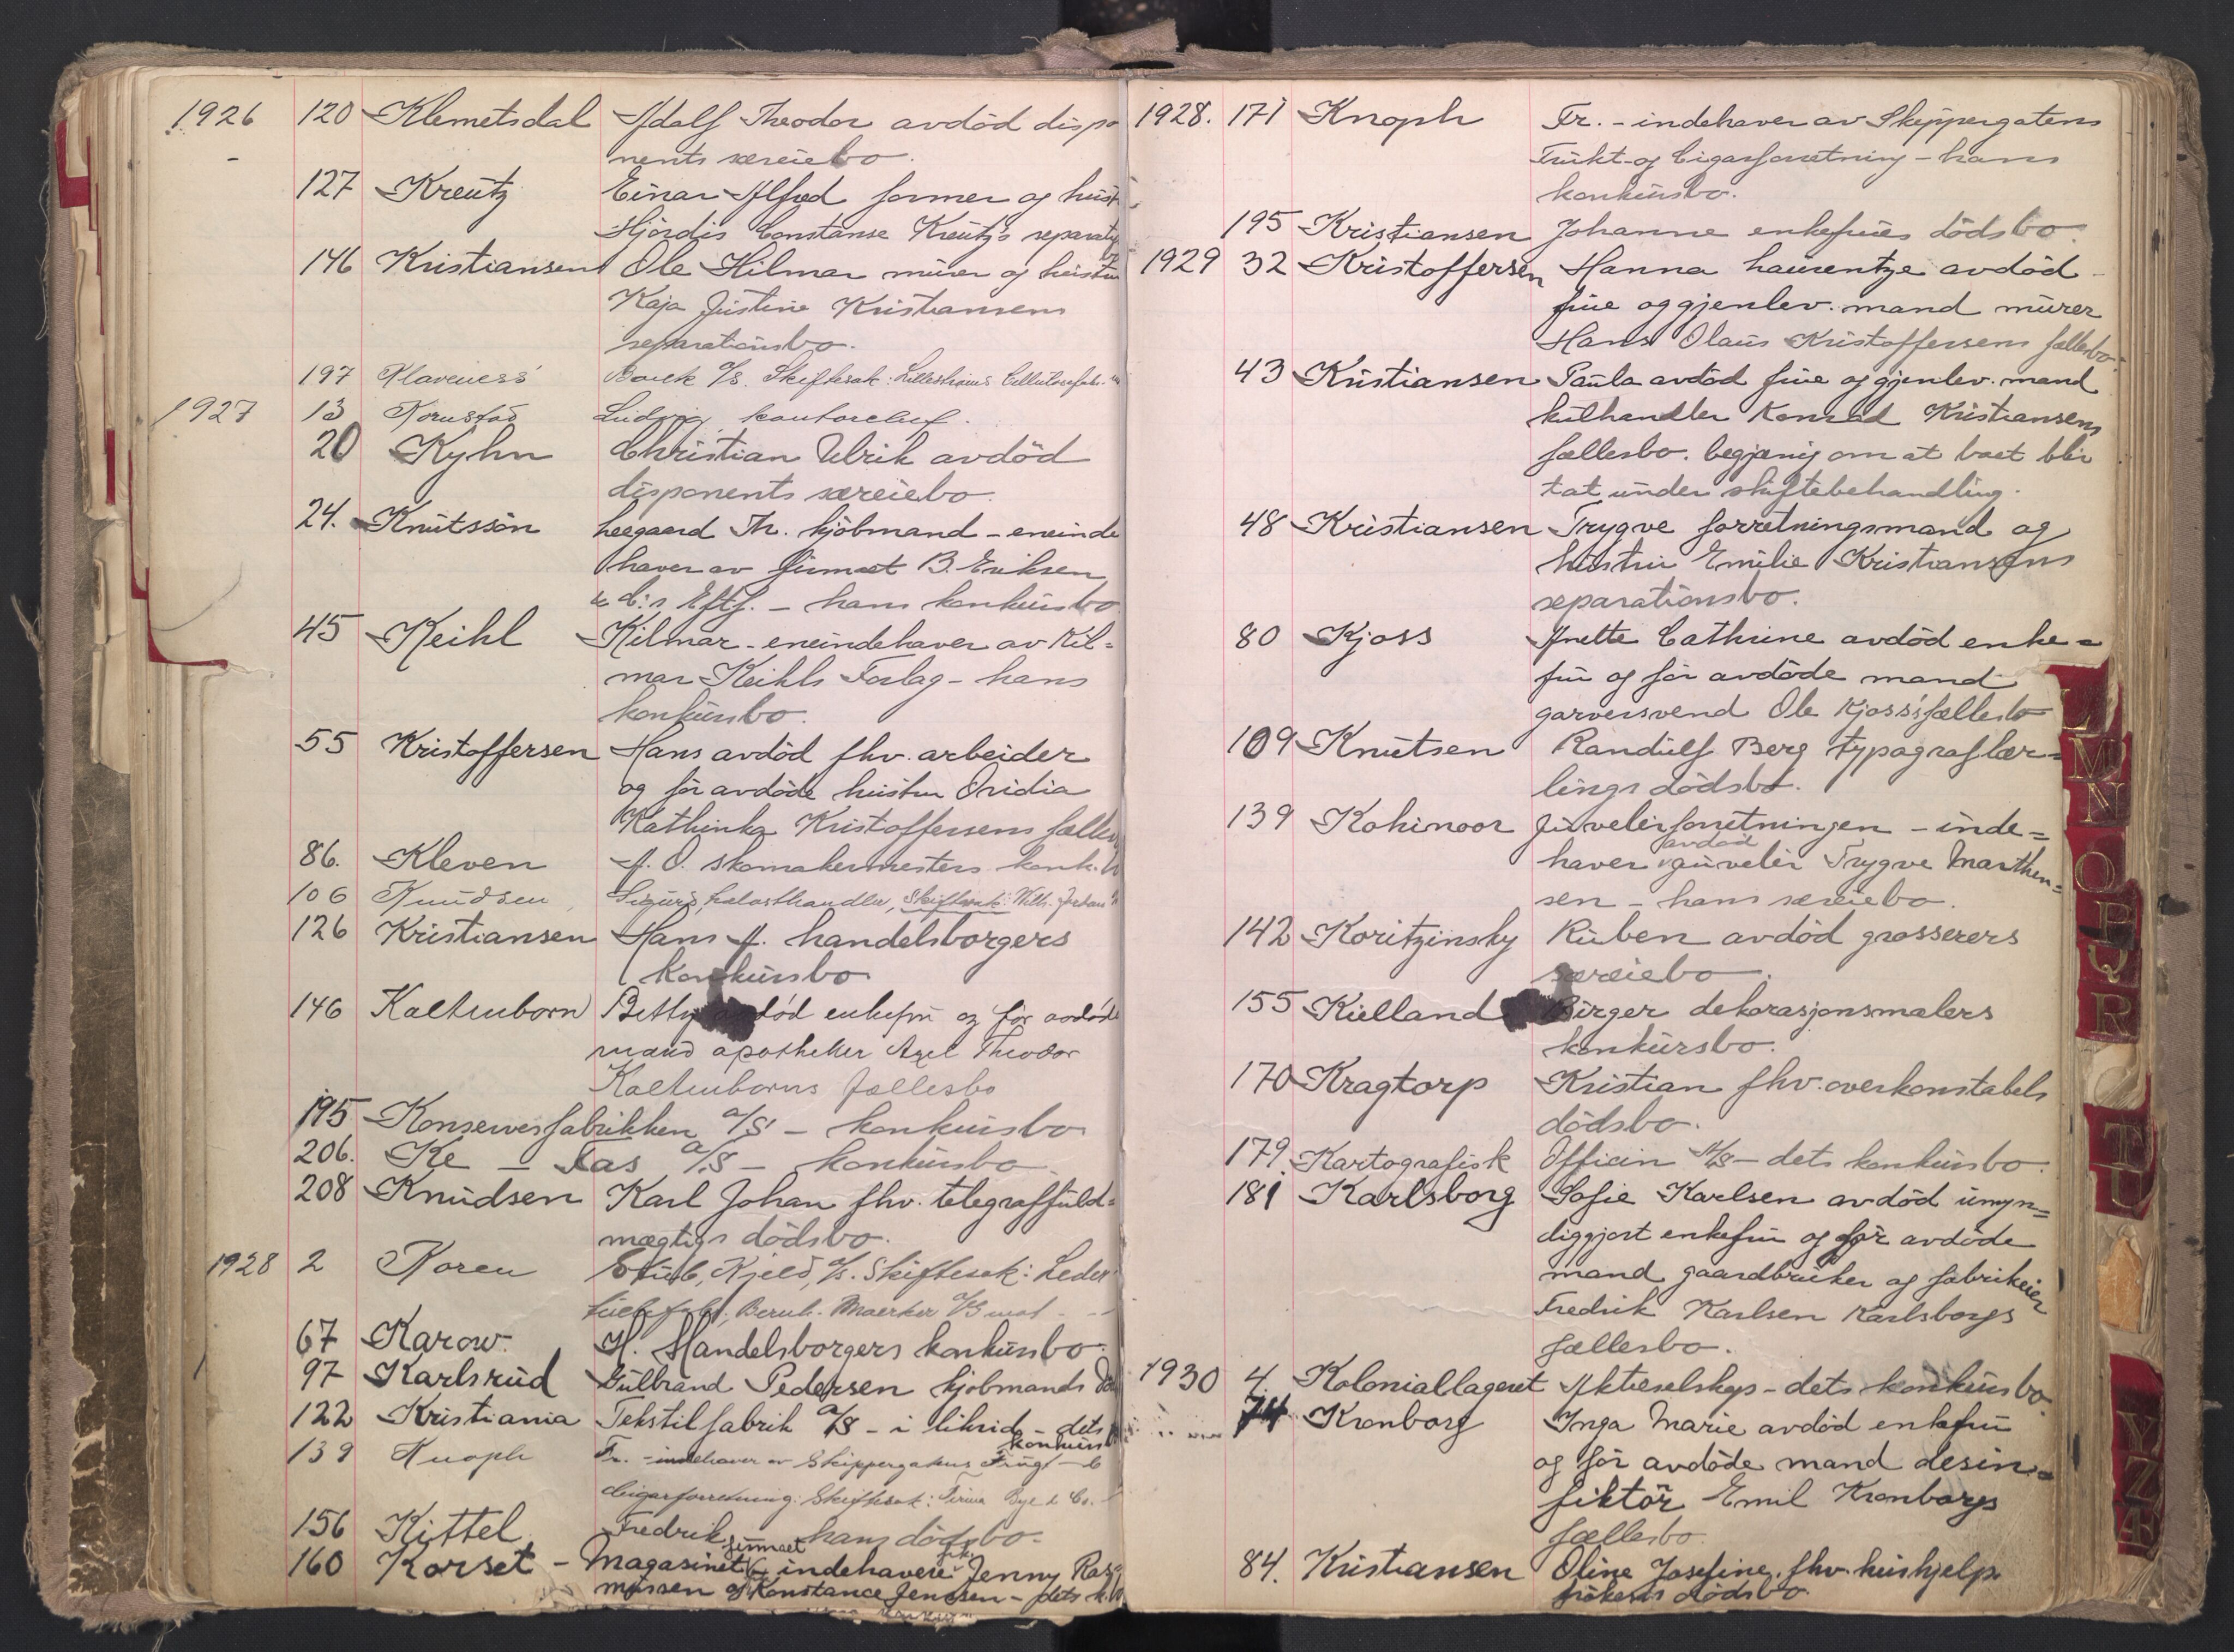 1926 120 Klemetsdal Adolf Theodor avdöd dispo
nents særeiebo.
127 Kreutz Einar Alfred former og hust
Hjördis Constanse Kreutz's separati
146 Kristiansen Ole Hilmar murer og hustru
Kaja Justine Kristiansens
separationsbo.
197 Klaveness' Bank A/S. Skiftesak: Lillestrøms Cellulosefab.
1927 13 Kornstad Ludvig, kontorchef.
20 Kyhn Christian Ulrik avdöd
disponents særeiebo.
24. Knutssön Leegaard Th. kjöbmand - eneinde
haver av firmaet B. Eriksen
& C:s Eftf. - hans konkursbo
45 Keihl Kilmar - eneindehaver av Kil=
mar Keihls Forlag - hans
konkursbo.
55 Kristoffersen Hans avdöd fhv. arbeider
og för avdöde hustru Ovidia
Kathinka Kristoffersens fælles
86. Kleven A. O. skomakermesters konk. b
106 Knudsen, Sigurd, Skiftesak: Wilh.
126 Kristiansen Hans A. handelsborgers
konkursbo
146 Kaltenborn Betty avdöd enkefru og för avdöde
mand apotheker Axel Theodor
Kaltenborns fællesbo
195 Konservesfabrikken A/S - konkursbo
206. Ke - Tas A/S - konkursbo
208 Knudsen Karl Johan fhv. telegraffuld=
mægtigs dödsbo.
1928 2 Koren Stub, Kjeld, A/S. Skiftesak: Leder
Bernh. Maerker A/S mot - -
67 Karow. H. Handelsborgers konkursbo.
97 Karlsrud Gulbrand Pedersen kjöbmands dö
122 Kristiania Tekstilfabrik A/S - i likvid - dets
konkursb
139 Knoph Fr. - indehaver av Skippergatens Frugt - &
Cigarforretning: Skiftesak: Firma Bye & Co.
156 Kittel Fredrik hans dödsbo.
160 Korset - Magasinet firmaet - indehavere frk. Jenny Ras
mussen og Konstance Jensen - dets k.b
1928. 171 Knoph Fr. - indehaver av Skippergatens
Frukt- og Cigarforretning - hans
konkursbo.
195 Kristiansen Johanne enkefrues dödsbo.
1929 32 Kristoffersen Hanna Laurentze avdöd
frue og gjenlev. mand murer
Hans Olaus Kristoffersens fællesbo.
43 Kristiansen Paula avdöd frue og gjenlev. mand
kulhandler Konrad Kristiansens
fællesbo. begjæring om at boet blir
tat under skiftebehandling.
48 Kristiansen Trygve forretningsmand og
hustru Emilie Kristiansens
separationsbo.
80 Kjoss Anette Cathrine avdöd enke=
fru og för avdöde mand
garversvend Ole Kjoss's fællesbo
109 Knutsen Randulf Berg typograflær=
lings dödsbo.
139 Kohinoor Juvelérforretningen - inde=
haver avdöd juvelér Trygve Marthen=
sen - hans særeiebo.
142 Koritzinsky Ruben avdöd grosserers
særeiebo.
155 Kielland Birger dekorasjonsmalers
konkursbo.
170 Kragtorp Kristian fhv. overkonstabels
dödsbo.
179. Kartografisk Officin A/S - dets konkursbo.
181 Karlsborg Sofie Karlsen avdöd umyn=
diggjort enkefru og för avdöde
mand gaardbruker og fabrikeier
Fredrik Karlsen Karlsborgs
fællesbo.
1930 4. Koloniallageret Aktieselskap - dets konkursbo.
74 Kronborg Inga Marie avdöd enkefru
og för avdöde mand desin=
fiktör Emil Kronborgs
fællesbo.
84. Kristiansen Oline Josefine, fhv. hushjelps
frökens dödsbo.
L
M
N
O
P
Q
R
T
U
Y
Z
Æ